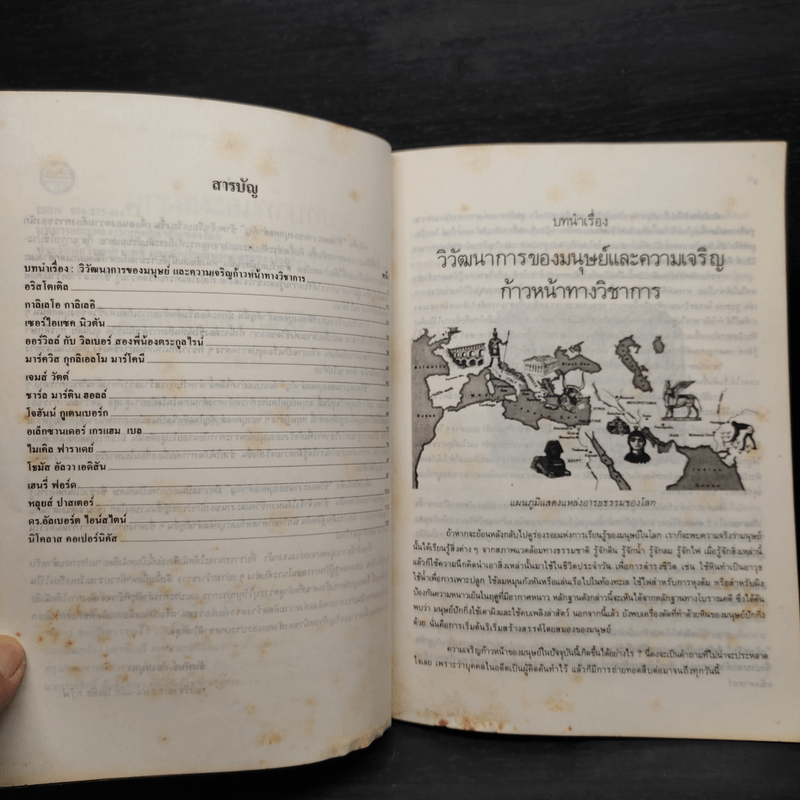 สารบัญ
บทนำเรื่อง : วิวัฒนาการของมนุษย์ และความเจริญก้าวหน้าทางวิชาการ
อริสโตเติล
กาลิเลโอ กาลิเลอิ
เซอร์ไอแซค นิวตัน
ออร์วิลล์ กับ วิลเบอร์ สองพี่น้องตระกูลไรน์
มาร์ควิส กูกลิเอลโม มาร์โคนี
เจมส์ วัตต์
ชาร์ล มาร์ติน ฮอลล์
โจฮันน์ กูเตนเบอร์ก
อเล็กซานเดอร์ เกรแฮม เบล
ไมเคิล ฟาราเดย์
โธมัส อัลวา เอดิสัน
เฮนรี่ ฟอร์ด
หลุยส์ ปาสเตอร์
ดร.อัลเบอร์ต ไอน์สไตน์
นิโคลาส คอเปอร์นิคัส
บทนำเรื่อง
วิวัฒนาการของมนุษย์และความเจริญ
ก้าวหน้าทางวิชาการ
EGYPT
แผนภูมิแสดงแหล่งอารยธรรมของโลก
ถ้าหากจะย้อนหลังกลับไปดูร่องรอยแห่งการเรียนรู้ของมนุษย์ในโลก เราก็จะพบความจริงว่ามนุษย์
นั้นได้เรียนรู้สิ่งต่าง ๆ จากสภาพแวดล้อมทางธรรมชาติ รู้จักดิน รู้จักน้ำ รู้จักลม รู้จักไฟ เมื่อรู้จักสิ่งเหล่านี้
แล้วก็ใช้ความนึกคิดนำเอาสิ่งเหล่านั้นมาใช้ในชีวิตประจำวัน เพื่อการดำรงชีวิต เช่น ใช้หินทำเป็นอาวุธ
ใช้น้ำเพื่อการเพาะปลูก ใช้ลมหมุนกังหันหรือแล่นเรือไปในท้องทะเล ใช้ไฟสำหรับการหุงต้ม หรือสำหรับผิง
ป้องกันความหนาวเย็นในฤดูที่มีอากาศหนาว หลักฐานดังกล่าวนี้จะเห็นได้จากหลักฐานทางโบราณคดี ซึ่งได้ค้น
พบว่า มนุษย์ปักกิ่งใช้เตาผิงและใช้คบเพลิงล่าสัตว์ นอกจากนี้แล้ว ยังพบเครื่องตัดที่ทำด้วยหินของมนุษย์ปักกิ่ง
ด้วย นั่นคือการเริ่มต้นริเริ่มสร้างสรรค์โดยสมองของมนุษย์
ความเจริญก้าวหน้าของมนุษย์ในปัจจุบันนี้เกิดขึ้นได้อย่างไร ? นี่คงจะเป็นคำถามที่ไม่น่าจะประหลาด
ใจเลย เพราะว่าบุคคลในอดีตเป็นผู้คิดค้นทำไว้ แล้วก็มีการถ่ายทอดสืบต่อมาจนถึงทุกวันนี้